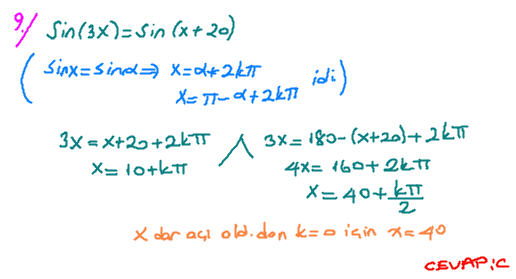 9/ Sin(3x)=sin(x+20)
(sinx=sinα⇒ x=α+2kπ
x=π-α+2kπ idi)
3x=x+20+2kπ 3x=180-(x+20)+2kπ
x=10+kπ 4x=160+2kπ
x=40+kπ/2
x dar açı old.dan k=0 için x=40
CEVAP:C